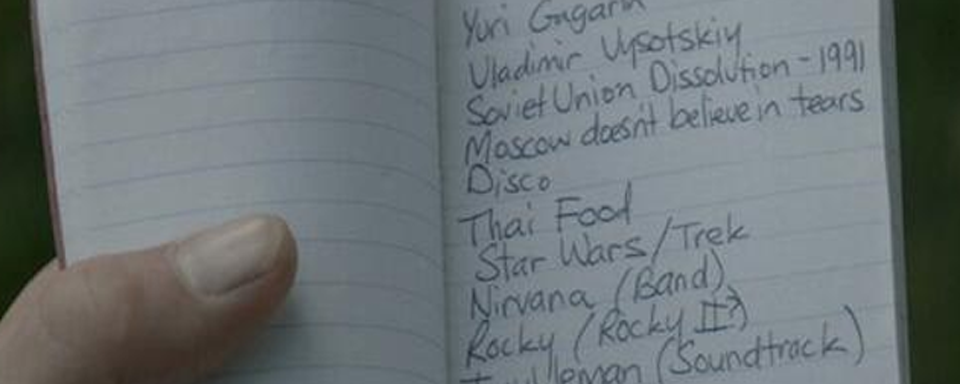 Yuri Gagarin
Vladimir Vysotskiy
Soviet Union Dissolution - 1991
Moscow doesn't believe in tears
Disco
Thai Food
Star Wars/Trek
Nirvana (Band)
Rocky (Rocky II?)
(Soundtrack)